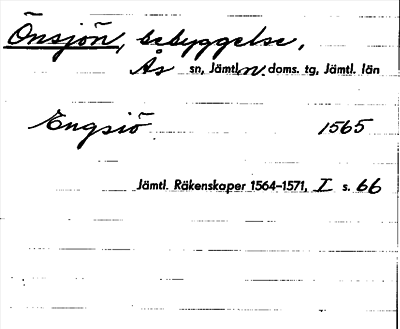 Önsjön, bebyggelse,
Ås sn, Jämtl. n. doms. tg, Jämtl. län
Engsiö 1565
Jämtl. Räkenskaper 1564-1571, I s. 66